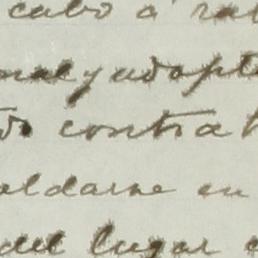 cabo a
y adopt
contra
oldarse en
del lugar